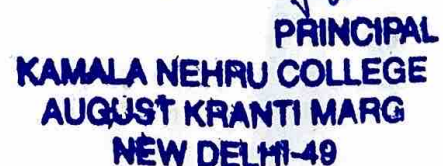 PRINCIPAL
KAMALA NEHRU COLLEGE
AUGUST KRANTI MARG
NEW DELHI-49